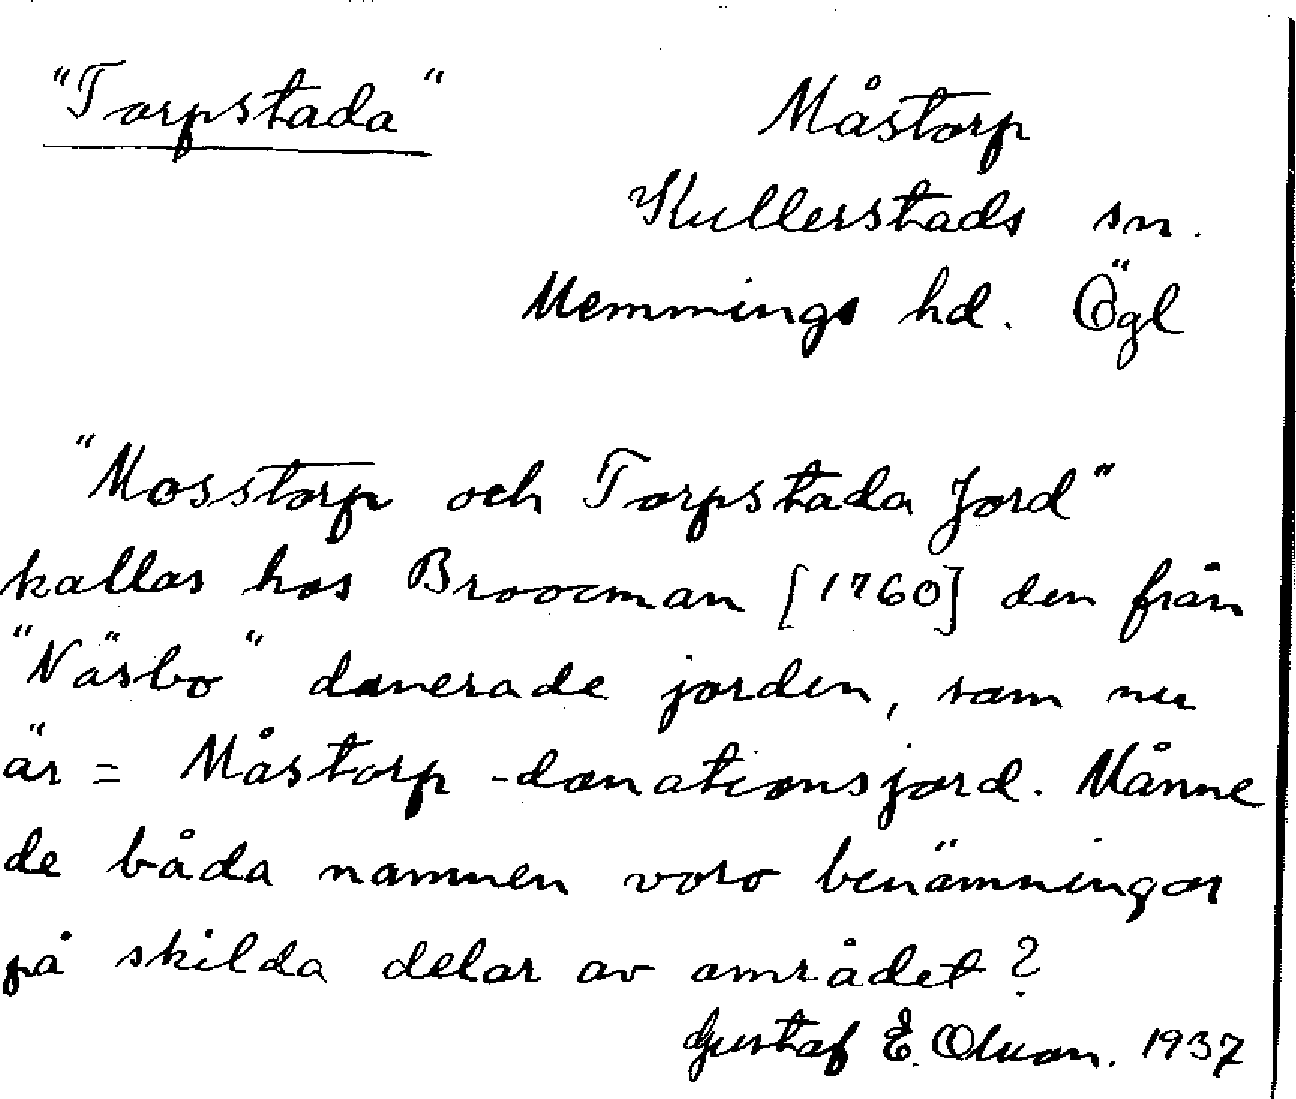 "Torpstada"
Måstorp
Kullerstads sn.
Memmings hd. Ögl
"Mosstorp och Torpstada Jord"
kallas hos Broocman [1760] den från
"Näsbo" donerade jorden, som nu
är = Måstorp-donationsjord. Månne
de båda namnen voro benämningar
på skilda delar av området?
Gustaf E. Olsson. 1937